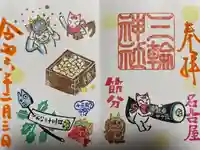 奉拝
三輪
神社
名古屋
節分
令和六年二月三日